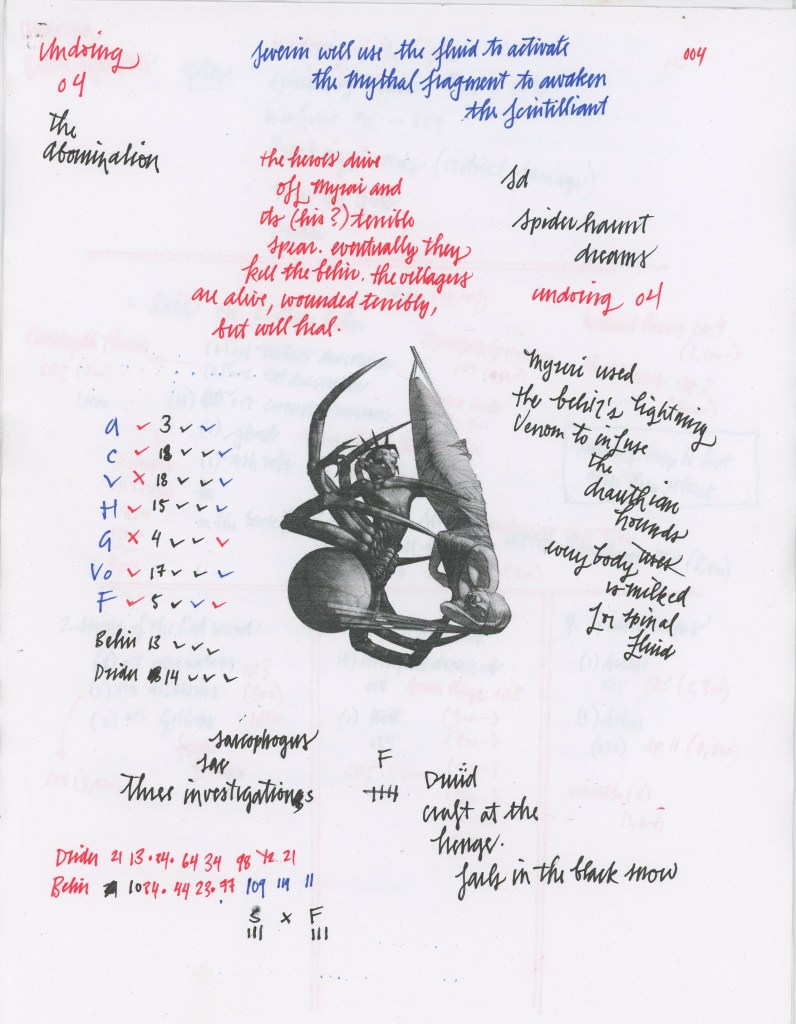 undoing
04
the
Abomination
Severin will use the fluid to activate
the Mythal fragment to awaken
the Scintilliant
004
the heroes drive
off Myrai and
its (his?) terrible
spear. eventually they
kill the behir. the villagers
are alive, wounded terribly,
but will heal.
Sd
Spiderhaunt
dreams
undoing 04
used
the behir's lightning
Venom to infuse
the
hounds
everybody
is milked
for spinal
fluid
A ✓ 3 ✓ ✓
C ✓ 18 ✓ ✓ ✓
V × 18 ✓ ✓ ✓
H ✓ 15 ✓ ✓ ✓
G × 4 ✓ ✓ ✓
Vo ✓ 17 ✓ ✓ ✓
F ✓ 5 ✓ ✓ ✓
Behir 13 ✓ ✓ ✓
Drider 14 ✓ ✓ ✓
sarcophagus
sac
three investigations
F
Druid
craft at the
henge.
fails in the black snow
Drider 21 13 34 64 34 98 21
Behir 10 34 44 23 97 109 111 11
S × F
III III